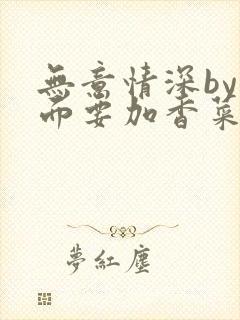 無意情深by
而要加香菜
夢紅塵